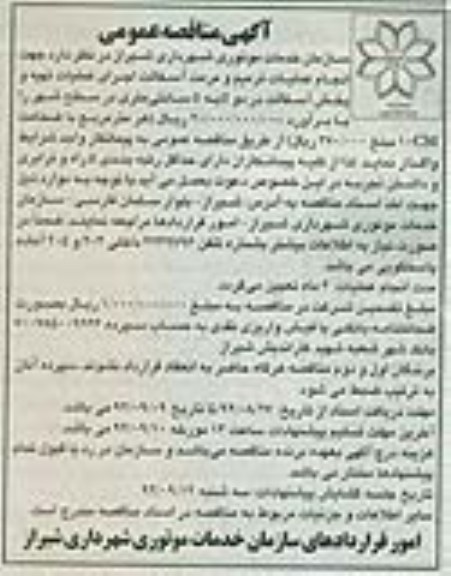 آگهی مناقصه عمومی
سازمان خدمات موتوری شهرداری شیراز در نظر دارد جهت
انجام عملیات ترمیم و مرمت آسفالت اجرای عملیات تهیه و
پخش آسفالت در دو لایه ۵ سانتی‌متری در سطح شهر را
به برآورد ریال (هر مترمربع با ضخامت
ریال) از طریق مناقصه عمومی به پیمانکار واجد شرایط
واگذار نماید. لذا از کلیه پیمانکاران دارای حداقل رتبه بندی ۵ راه و ترابری
و داشتن تجربه در این خصوص دعوت بعمل می آید با توجه به موارد ذیل
جهت اخذ اسناد مناقصه به آدرس: شیراز - بلوار سلمان فارسی - سازمان
خدمات موتوری شهرداری شیراز - امور قراردادها مراجعه نمایند. ضمناً در
صورت نیاز به اطلاعات بیشتر بشماره تلفن داخلی ۲۰۳ و ۲۰۴ آماده
پاسخگویی می باشد.
مدت انجام عملیات: ۲ ماه تعیین می‌گردد.
مبلغ تضمین شرکت در مناقصه به مبلغ ریال بصورت
ضمانتنامه بانکی یا فیش واریزی نقدی به حساب سپرده
بانک شهر شعبه شهید
برندگان اول و دوم مناقصه هرگاه حاضر به انعقاد قرارداد نشوند، سپرده آنان
به ترتیب ضبط می شود.
مهلت دریافت اسناد از تاریخ تا تاریخ می باشد.
آخرین مهلت تسلیم پیشنهادات ساعت ۱۳ مورخه می باشد.
هزینه درج آگهی بعهده برنده مناقصه می‌باشد و سازمان در رد یا قبول تمام
پیشنهادها مختار می باشد.
تاریخ جلسه گشایش پیشنهادات سه شنبه
سایر اطلاعات و جزئیات مربوط به مناقصه در اسناد مناقصه مندرج است.
امور قراردادهای سازمان خدمات موتوری شهرداری شیراز